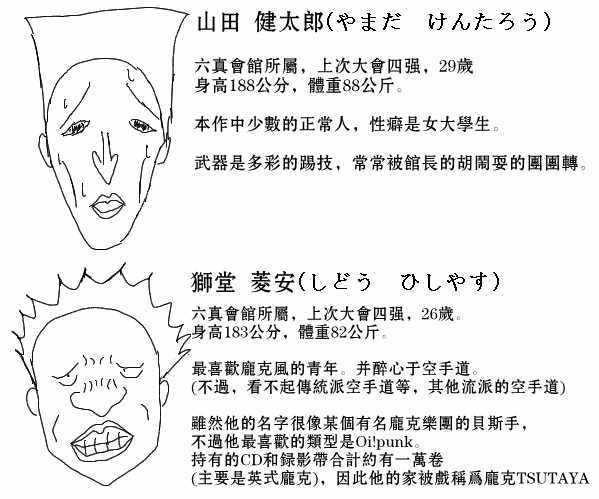 山田 健太郎(やまだ　けんたろう)
六真會館所屬，上次大會四强，29歲
身高188公分，體重88公斤。
本作中少數的正常人，性癖是女大學生。
武器是多彩的踢技，常常被館長的胡鬧耍的團團轉。
獅堂 菱安(しどう　ひしやす)
六真會館所屬，上次大會四强，26歲。
身高183公分，體重82公斤。
最喜歡龐克風的青年。并醉心于空手道。
(不過，看不起傳統派空手道等，其他流派的空手道)
雖然他的名字很像某個有名龐克樂團的貝斯手，
不過他最喜歡的類型是Oi!punk。
持有的CD和録影帶合計約有一萬卷
(主要是英式龐克)，因此他的家被戲稱爲龐克TSUTAYA